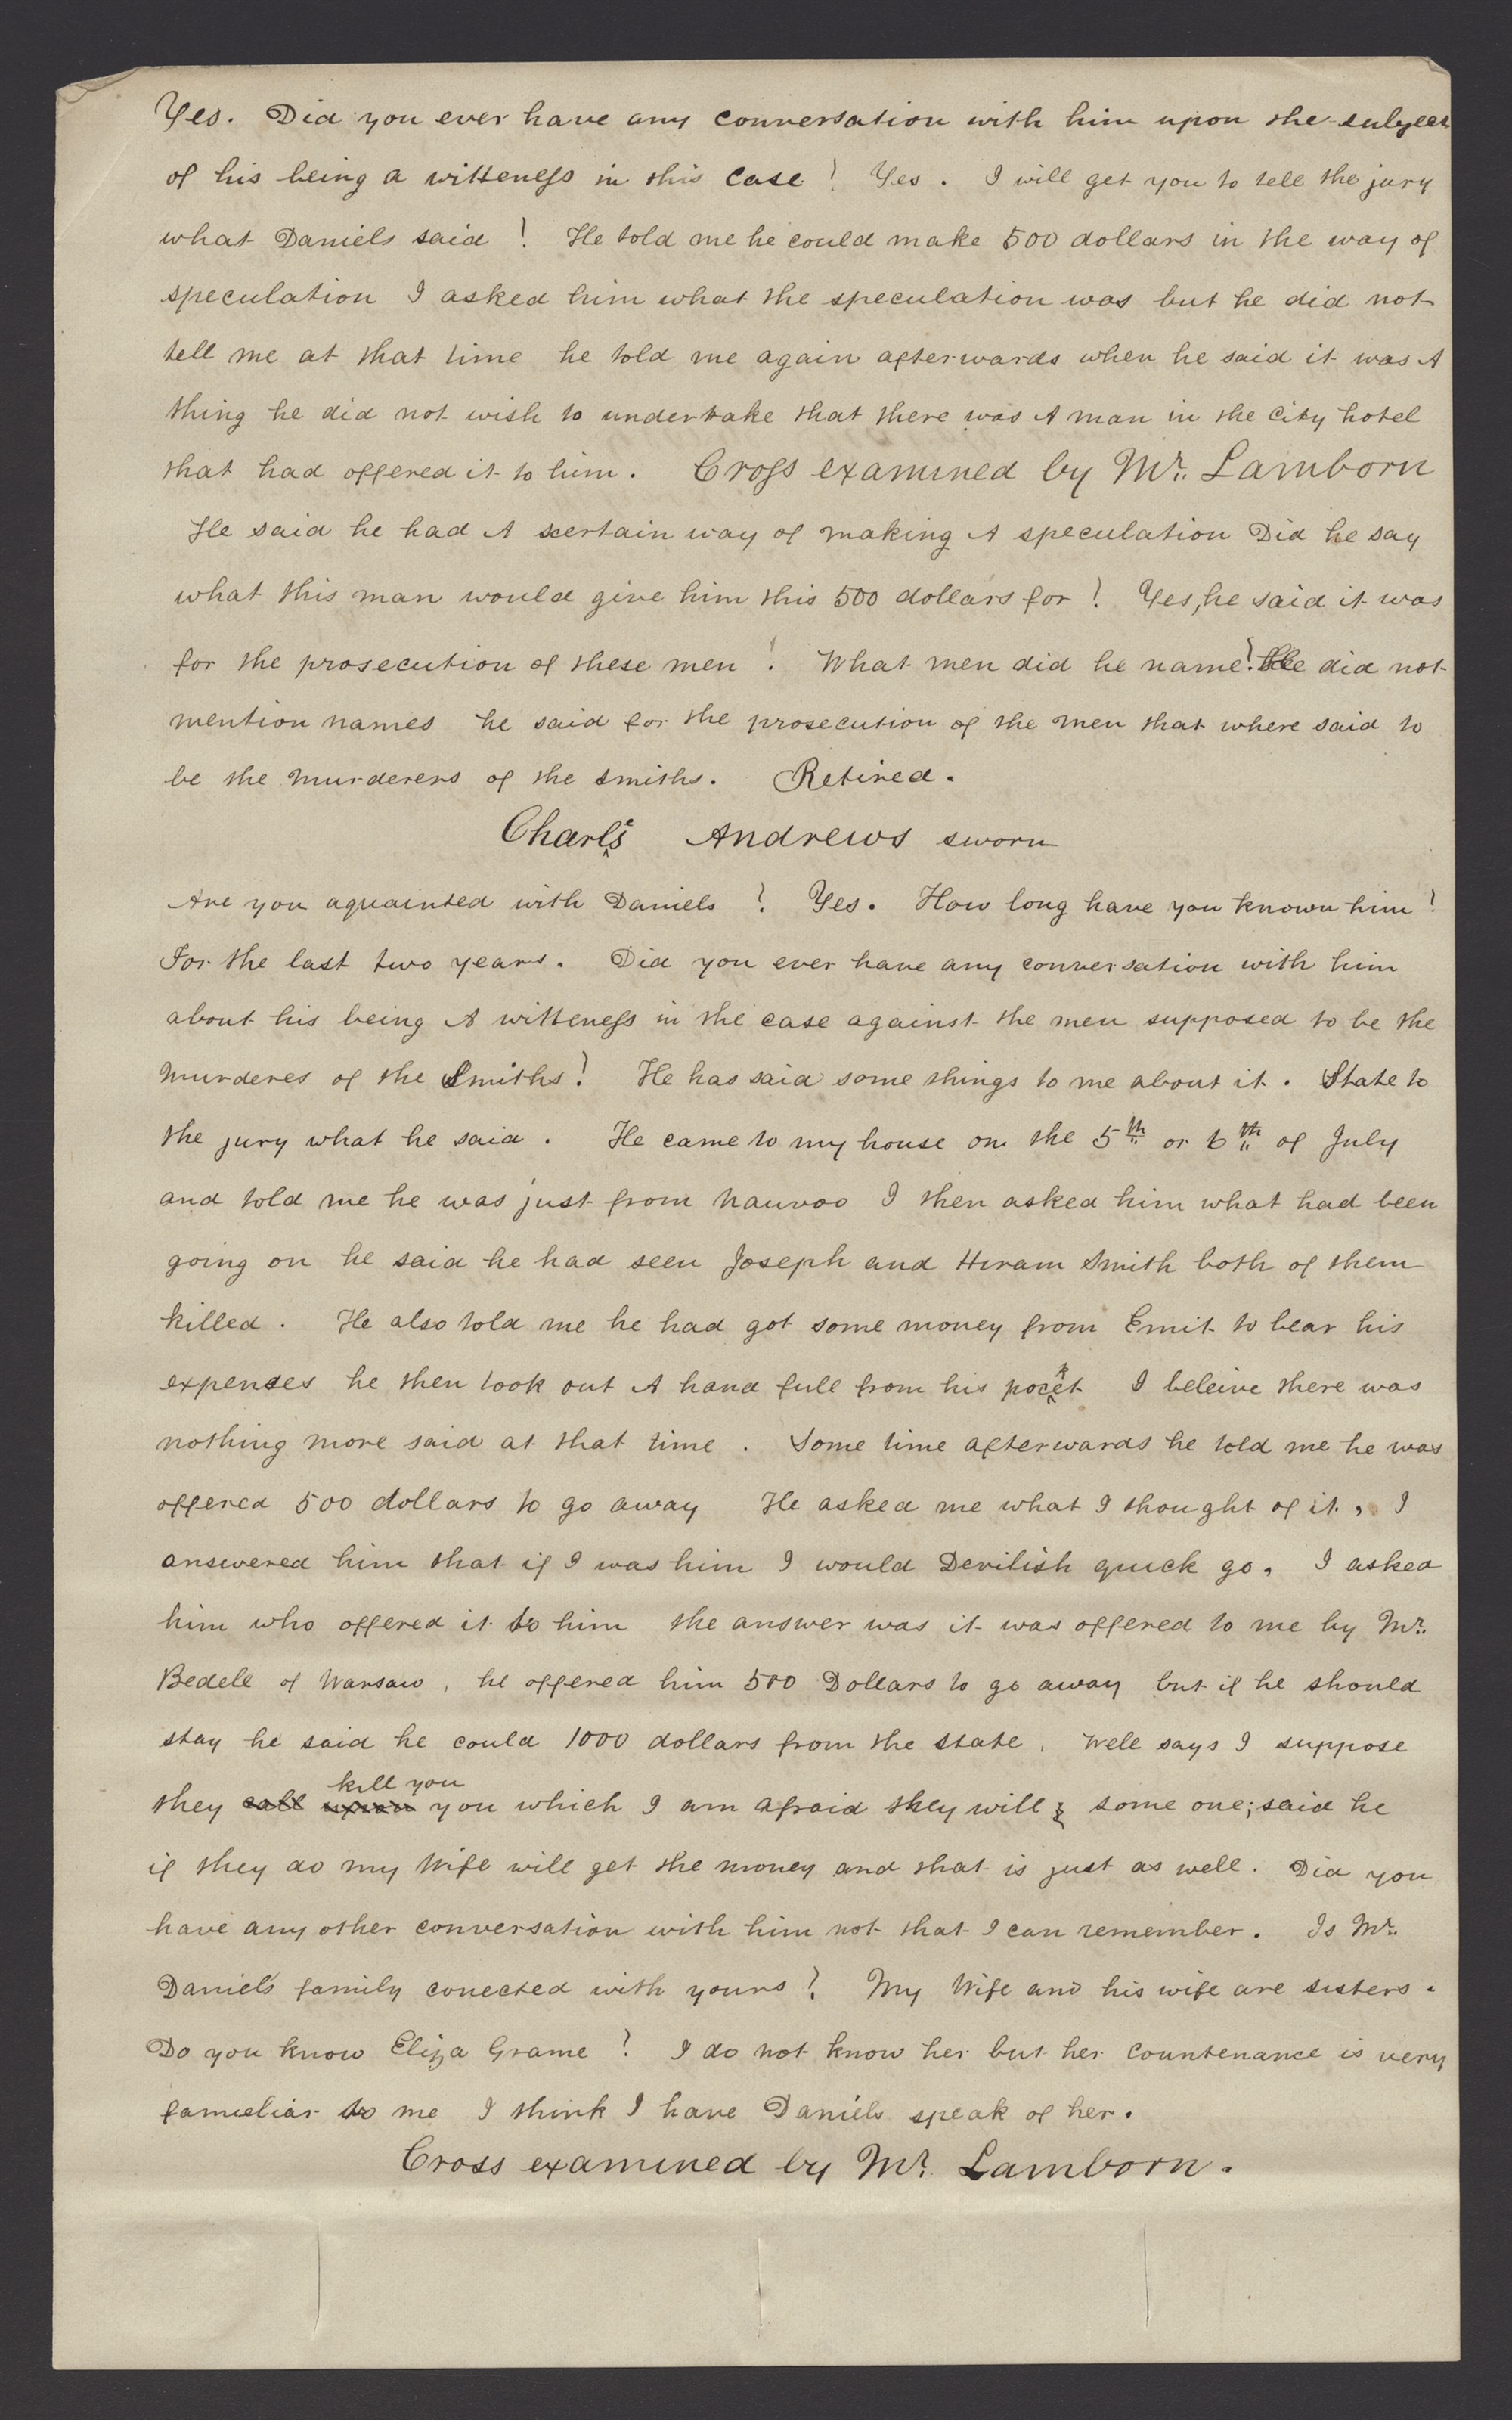 Yes. Did you ever have any conversation with him upon the subject
of his being a witteness in this case ? Yes. I will get you to tell the jury
what Daniels said ? He told me he could make 500 dollars in the way of
speculation I asked him what the speculation was but he did not
tell me at that time he told me again afterwards when he said it was A
thing he did not wish to undertake that there was A man in the City hotel
that had offered it to him. Cross examined by Mr. Lamborn
He said he had A scertain way of making A speculation Did he say
what this man would give him this 500 dollars for ? Yes, he said it was
for the prosecution of these men ? What men did he name? He did not
mention names he said for the prosecution of the men that where said to
be the murderers of the Smiths. Retired.
Charles Andrews sworn
Are you aquainted with Daniels ? Yes. How long have you known him ?
For the last two years. Did you ever have any conversation with him
about his being A witteness in the case against the men supposed to be the
murderes of the Smiths? He has said some things to me about it. State to
the jury what he said. He came to my house on the 5th or 6th of July
and told me he was just from Nauvoo I then asked him what had been
going on he said he had seen Joseph and Hiram Smith both of them
killed. He also told me he had got some money from Emit to bear his
expenses he then took out A hand full from his pocket I beleive there was
nothing more said at that time. Some time afterwards he told me he was
offered 500 dollars to go away He asked me what I thought of it, I
answered him that if I was him I would Devilish quick go, I asked
him who offered it to him the answer was it was offered to me by Mr.
Bedell of Warsaw, he offered him 500 Dollars to go away but if he should
stay he said he could 1000 dollars from the state. Well says I suppose
they call upon kill you you which I am afraid they will & some one; said he
if they do my Wife will get the money and that is just as well. Did you
have any other conversation with him not that I can remember. Is Mr.
Daniels family conected with yours ? My Wife and his wife are sisters.
Do you know Eliza Grame ? I do not know her but her countenance is very
famieliar to me I think I have Daniels speak of her.
Cross examined by Mr. Lamborn.